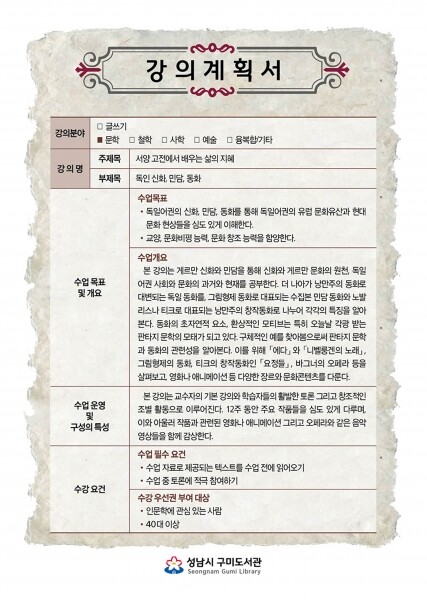 강의계획서
강의분야
□ 글쓰기
■ 문학 □ 철학 □ 사학 □ 예술 □ 융복합/기타
강 의 명
주제목
서양 고전에서 배우는 삶의 지혜
부제목
독인 신화, 민담, 동화
수업 목표
및 개요
수업목표
• 독일어권의 신화, 민담, 동화를 통해 독일어권의 유럽 문화유산과 현대
문화 현상들을 심도 있게 이해한다.
• 교양, 문화비평 능력, 문화 창조 능력을 함양한다.
수업개요
본 강의는 게르만 신화와 민담을 통해 신화와 게르만 문화의 원천, 독일
어권 사회와 문화의 과거와 현재를 공부한다. 더 나아가 낭만주의 동화로
대변되는 독일 동화를, 그림형제 동화로 대표되는 수집본 민담 동화와 노발
리스나 티크로 대표되는 낭만주의 창작동화로 나누어 각각의 특징을 알아
본다. 동화의 초자연적 요소, 환상적인 모티브는 특히 오늘날 각광 받는
판타지 문학의 모태가 되고 있다. 구체적인 예를 찾아봄으로써 판타지 문학
과 동화의 관련성을 알아본다. 이를 위해 「에다」와 「니벨룽겐의 노래」,
그림형제의 동화, 티크의 창작동화인 「요정들」, 바그너의 오페라 등을
살펴보고, 영화나 애니메이션 등 다양한 장르와 문화콘텐츠를 다룬다.
수업 운영
및
구성의 특성
본 강의는 교수자의 기본 강의와 학습자들의 활발한 토론 그리고 창조적인
조별 활동으로 이루어진다. 12주 동안 주요 작품들을 심도 있게 다루며,
이와 아울러 작품과 관련된 영화나 애니메이션 그리고 오페라와 같은 음악
영상들을 함께 감상한다.
수강 요건
수업 필수 요건
• 수업 자료로 제공되는 텍스트를 수업 전에 읽어오기
• 수업 중 토론에 적극 참여하기
수강 우선권 부여 대상
• 인문학에 관심 있는 사람
• 40대 이상
성남시 구미도서관
Seongnam Gumi Library